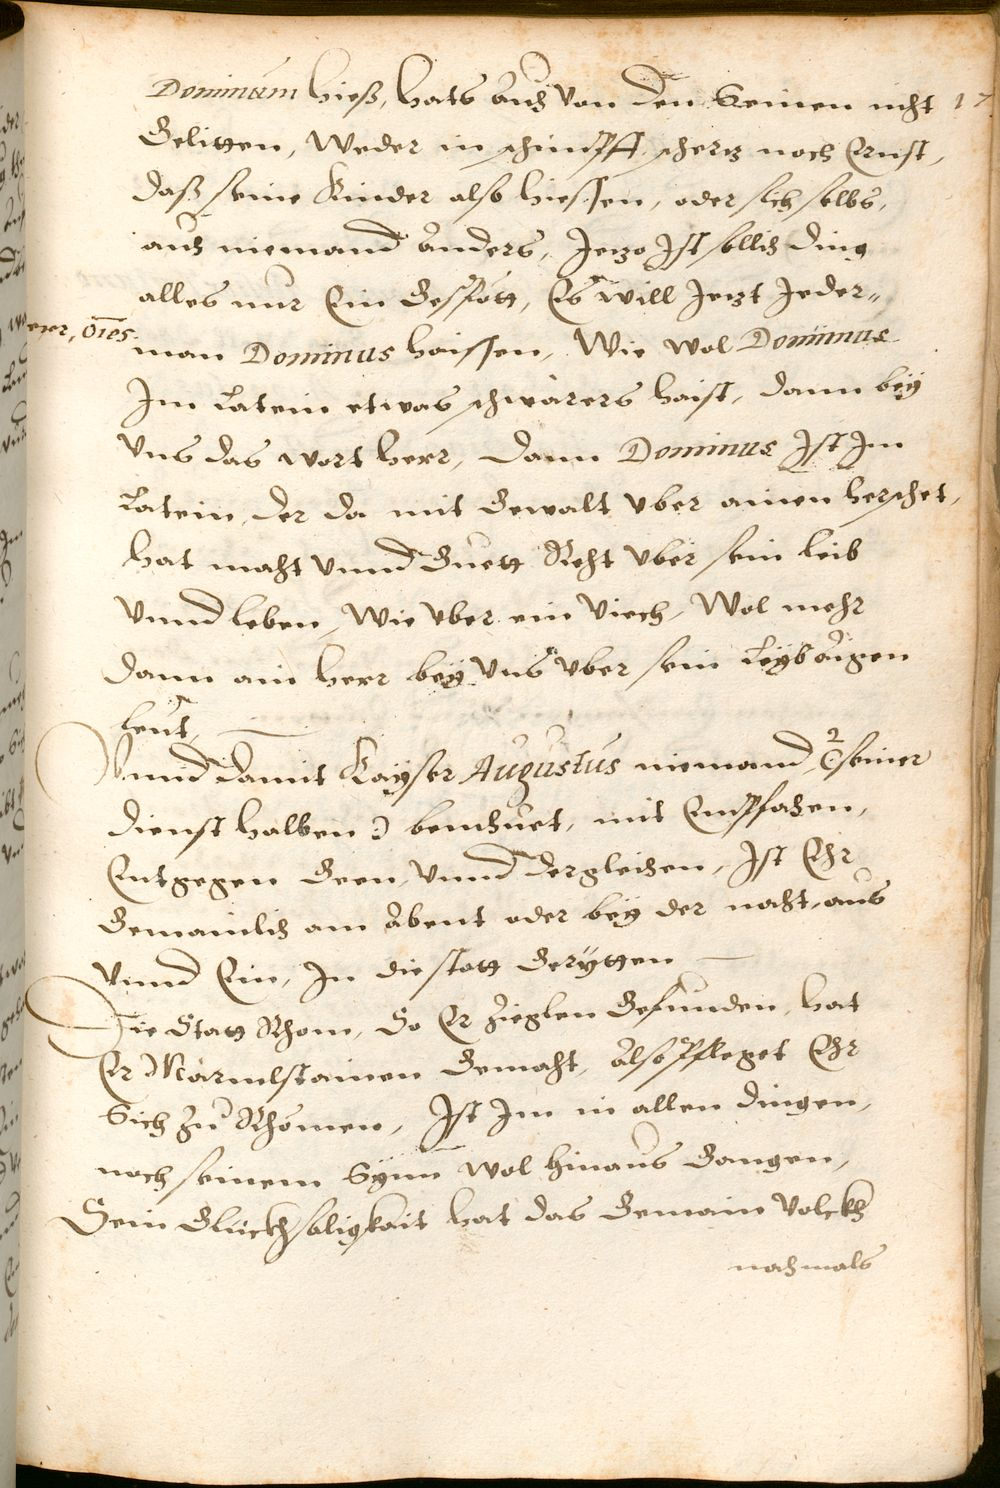 Dominum hieß, hats auch von den Seinen nicht 17
Gelitten, Weder in schimpff schertz noch Ernst,
daß seine Kinder also hiessen, oder sich selbs,
auch niemand anders, Jetzo Ist sollich ding
alles nur Ein Gespött, Es will Jetzt Jeder„
man Dominus haissen, Wie wol Dominus
Im Latein etwas schwärers haist, dann bey
Vns das wort herr, dann Dominus Ist Im
Latein, der da mit Gewalt vber ainen herschet,
hat macht vnnd Guett Recht vber sein leib
Vnnd leben, Wie vber ein viech, Wol mehr
dann ain herr bey Vns vber sein Leyb aigen
leut,
Vnnd damit Kayser Augustus niemand, (: seiner
dienst halben :) bemhuet, mit Empfahen,
Entgegen Geen, Vnnd dergleichen, Ist Ehr
Gemainlich am Abent oder bey der nacht, aus
Vnnd Ein, In die statt Gerytten
Die Statt Rhom, So Er Zieglen Gefunden, hat
Er Marmelstainen Gemacht, Also Pfleget Ehr
Sich zu Rhömen, Ist Im in allen dingen,
nach seinem Synn wol hinaus Gangen,
Sein Glückhsäligkait hat das Gemain Volckh
nachmals